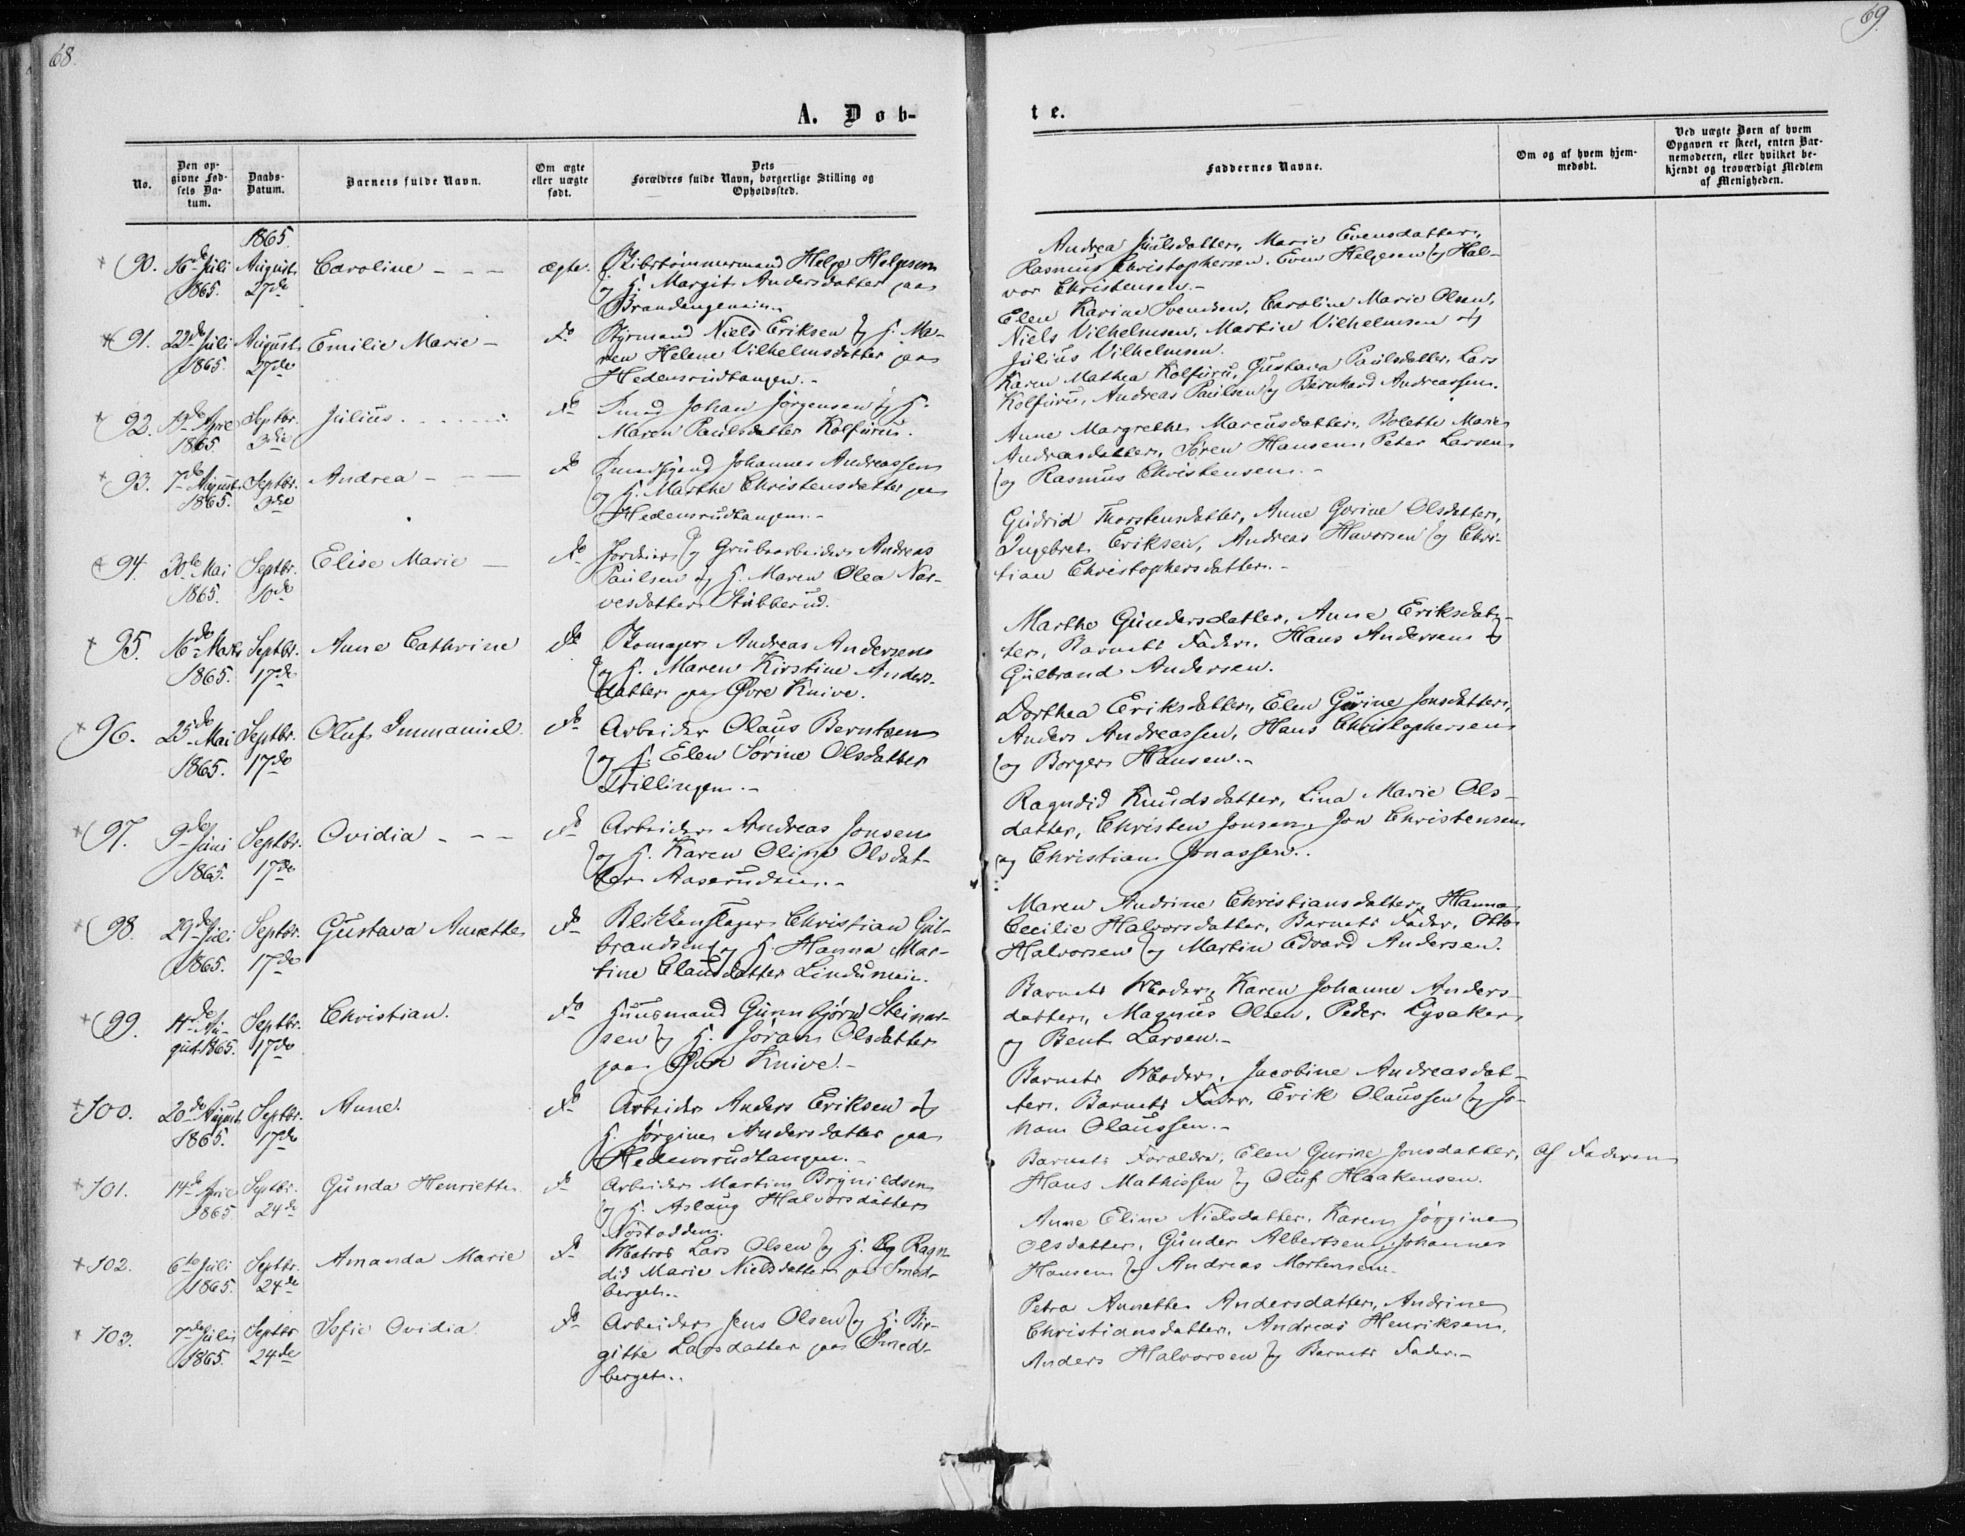 68.
A. Døb-
No.
Den op-
givne Fød-
sels Da-
tum.
Daabs-
Datum.
Barnets fulde Navn.
Om ægte
eller uægte
født.
Dets
Forældres fulde Navn, borgerlige Stilling og
Opholdssted.
1865.
90. 16de Juli August Caroline - - - ægte. Skibstømmermand Helge Helgesen
1865. 27de og H. Margit Andersdatter paa
Brandengeneien
91. 22de Juli August Emilie Marie - Do Styrmand Niels Eriksen og H. Ma-
1865. 27de ren Helene Vilhelmsdatter paa
Hedensrudtangen.-
92. Apre Septbr. Julius. Do Smed Johan Jørgensen og H.
1865 3die Maren Paulsdatter Kolfuru.
93. 7de August Septbr. Andrea - - - Do Smedsvend Johannes Andreassen
1865. 3die og H. Marthe Christensdatter paa
Hedensrudtangen.-
94. 30te Mai Septbr. Elise Marie - Do Jordeier og Grubearbeider Andreas
1865. 10de Paulsen og H. Maren Olea Nar-
vesdatter Stubberud.
95. 16de Marts Septbr. Anne Cathrine Do Skomager Andreas Andersen
1865. 17de og H. Maren Kirstine Anders-
datter paa Øvre Knive.
96. 25de Mai Septbr. Oluf Immanuel Do Arbeider Olaus Berntsen
1865. 17de og H. Elen Sorine Olsdatter
Tvillingen.-
97. 9de Juni Septbr. Ovidia - - - Do Arbeider Andreas Jonsen
1865. 17de og H. Karen Oline Olsdat-
ter Aaserudeien.-
98. 29de Juli Septbr. Gustava Annette Do Blikkenslager Christian Gul-
1865. 17de brandsen og H. Hanna Mar-
tine Clausdatter Lindumeie.
99. 11de Au- Septbr. Christian. Do Huusmand Gunnbjørn Steinar-
gust 1865. 17de sen og H. Joran Olsdatter
paa Øvre Knive.-
100. 20de August Septbr. Anne. Do Arbeider Anders Eriksen og
1865. 17de H. Jørgine Andersdatter paa
Hedensrudtangen.-
101. 14de Apri Septbr. Gunda Henriette Do Arbeider Martin Brynildsen
1865. 24de og H. Aslaug Halvorsdatter
Nostodden.
102. 6te Juli Septbr. Amanda Marie Do Matros Lars Olsen og H. Ragn-
1865. 24de did Marie Nielsdatter paa Smed-
berget.
103. 7de Juli Septbr Sofie Ovidia Do Arbeider Jens Olsen og H. Bir-
1865. 24de gitte Larsdatter paa Smed-
berget.
69.
te.
Faddernes Navne.
Om og af hvem hjem-
medøbt.
Ved uægte Børn af hvem
Opgaven er skeet, enten Bar-
nemoderen, eller hvilket be-
kjendt og troværdigt Medlem
af Menigheden.
Andrea Juulsdatter, Marie Evensdatter,
Rasmus Christophersen. Even Helgesen og Hal-
vor Christensen.-
Elen Karine Svendsen, Caroline Marie Olsen,
Niels Vilhelmsen, Martin Vilhelmsen og
Julius Vilhelmsen.
Karen Mathea Kolfuru, Gustava Paulsdatter, Lars
Kolfuru, Andreas Paulsen og Bernhard Andreassen.
Anne Margrethe Marcusdatter, Bolette Marie
Andreasdatter, Søren Hansen, Peter Larsen
og Rasmus Christensen.-
Gudrid Thorstensdatter, Anne Gurine Olsdatter,
Ingebret Eriksen, Andreas Havorsen og Chri-
stian Christophersdatter.-
Marthe Gundersdatter, Anne Eriksdat-
ter, Barnets Fader. Hans Andersen og
Gulbrand Andersen.
Dorthea Eriksdatter, Elen Gurine Jonsdatter,
Anders Andreassen, Hans Christophersen
og Borger Hansen.-
Ragndid Knudsdatter, Lina Marie Ols-
datter, Christen Jonsen, Jon Christensen
og Christian Jonassen.
Maren Andrine Christiansdatter, Hanna
Cecilie Halvorsdatter, Barnets Fader, Otto
Halvorsen og Martin Edvard Andersen.
Barnets Moder, Karen Johanne Anders-
datter, Magnus Olsen, Peder Lysaker
og Bent Larsen.-
Barnets Moder, Jacobine Andreasdat-
ter. Barnets Fader, Erik Olaussen og Jo-
han Olaussen.-
Barnets Forældre, Elen Gurine Jonsdatter, Af Faderen
Hans Mathissen og Oluf Haakensen.
Anne Eline Nielsdatter, Karen Jørgine
Olsdatter, Gunder Albertsen, Johannes
Hansen og Andreas Mortensen.
Petra Annette Andersdatter, Andrine
Christiansdatter, Andreas Henriksen,
Anders Halvorsen og Barnets Fader.-